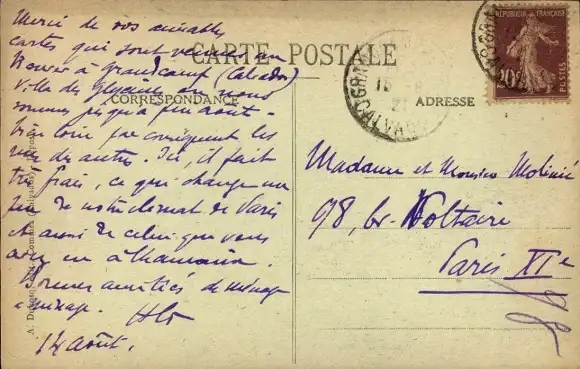 CARTE POSTALE
CORRESPONDANCE
ADRESSE
RÉPUBLIQUE FRANÇAISE
20c
POSTES
CALVADOS
Merci de vos aimables
cartes qui sont venues
trouver à Grandcamp (Calvados)
Villa des Glycines où nous
sommes jusqu'à fin août.
Bien loin par conséquent les
uns des autres. Ici, il fait
très frais, ce qui change un
peu de notre climat de Paris
et aussi de celui que vous
avez eu à
Bonnes amitiés de ménage
à ménage.
14 août.
Madame et Monsieur Molinié
98, Br Voltaire
Paris XIe